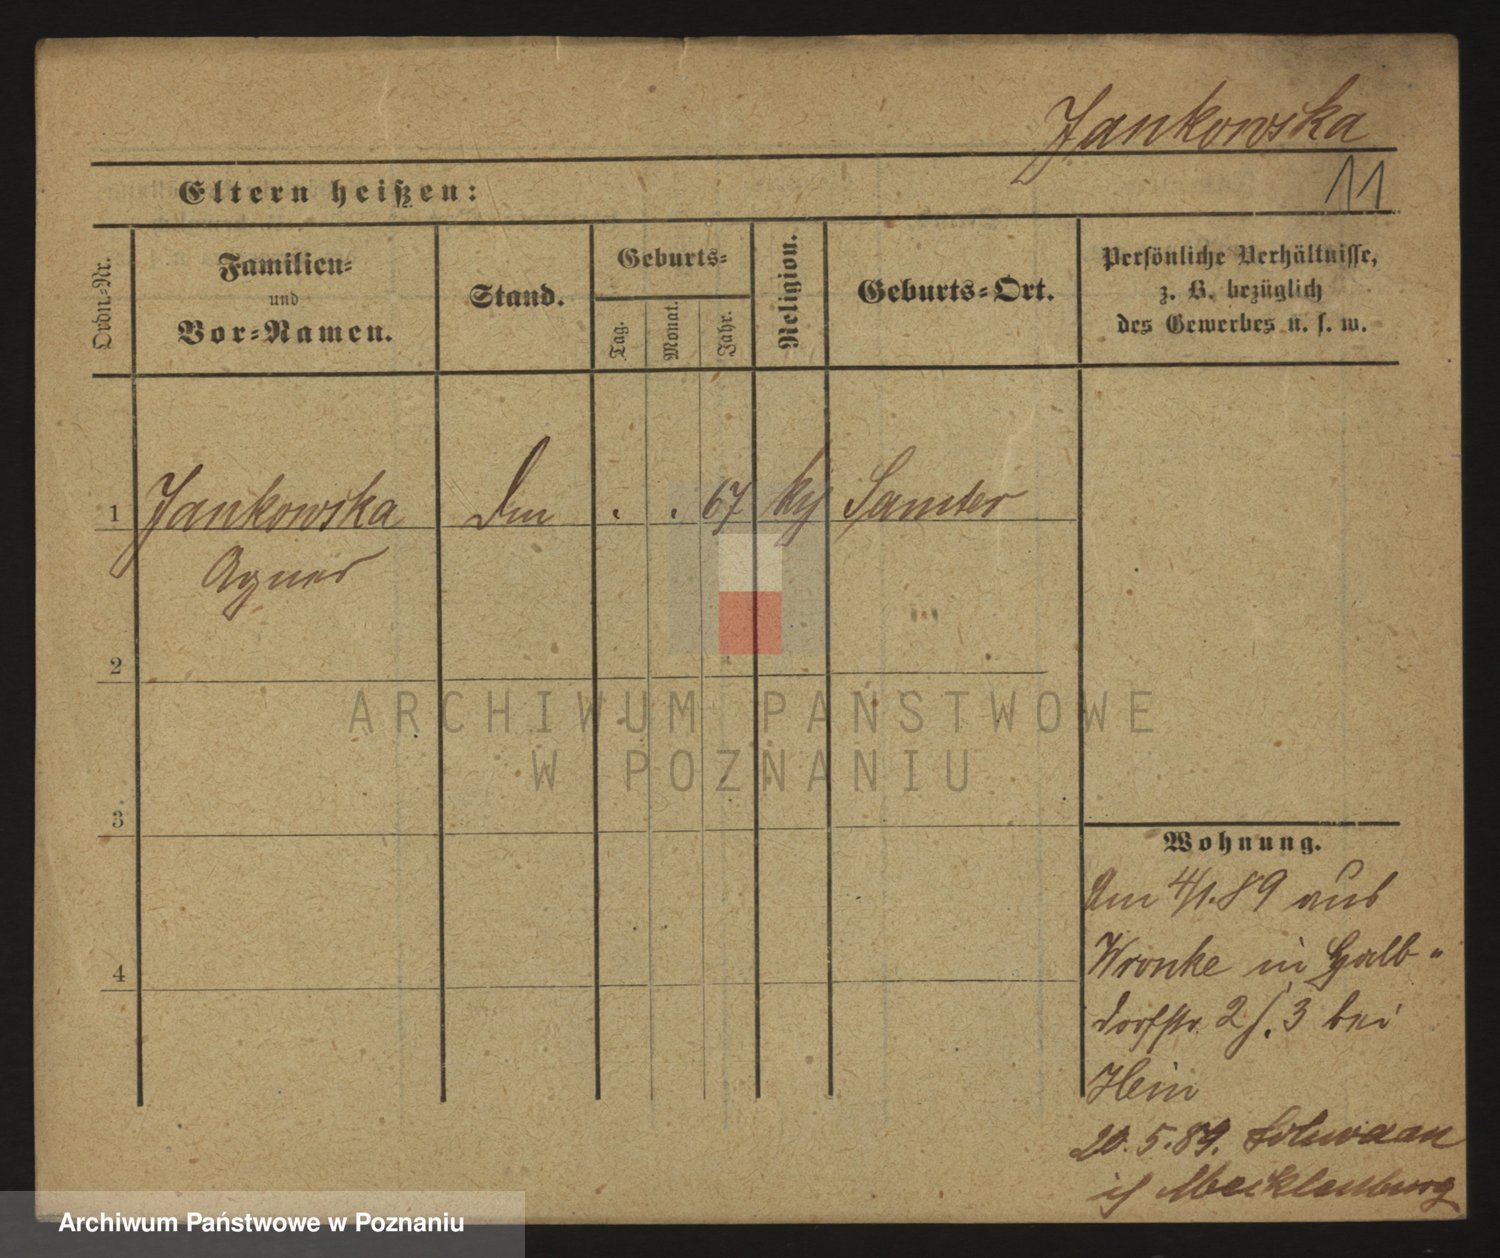 Jankowska
11
Eltern heißen:
Ordn-Nr.
Familien-
und
Vor-Namen.
Stand.
Geburts-
Tag.
Monat.
Jahr.
Religion.
Geburts-Ort.
Persönliche Verhältnisse,
z. B. bezüglich
des Gewerbes u. s. w.
1 Jankowska . . 67 Samter
Agnes
2
3
4
Wohnung.
Am 4/1.89 aus
Wronke in Halb-
dorfstr. 2 3 bei
Hein
20.5.89. Schwaan
Mecklenburg
ARCHIWUM PAŃSTWOWE
W POZNANIU
Archiwum Państwowe w Poznaniu